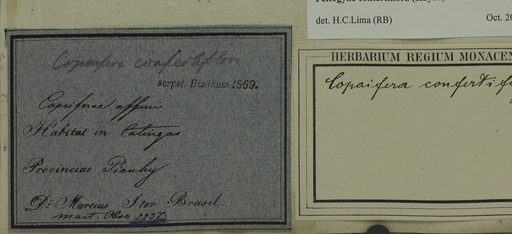 det. H.C.Lima (RB) Oct. 20
Copaifera confertiflora
scrpst. Bentham 1869.
Copaiferae affinis
Habitat in Catingas
Provinciae Piauhy
Dr. Martius Iter Brasil.
mart. Obs. 2237.
HERBARIUM REGIUM MONACEN
Copaifera confertif